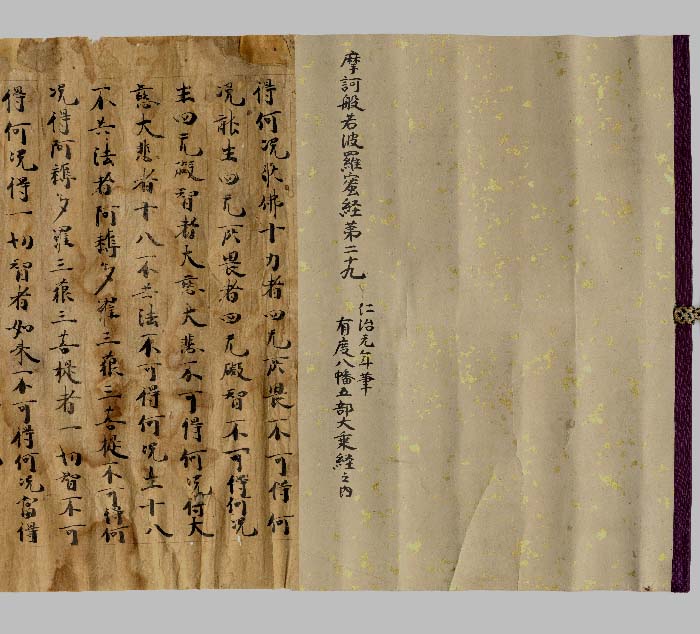 摩訶般若波羅蜜経第二十九
仁治元年筆
有度八幡五部大乗経之内
得何况佛十力者四无所畏不可得何
况能生四无所畏者四无礙智不可得何况
生四无礙智者大慈大悲不可得何况行大
慈大悲者十八不共法不可得何况生十八
不共法者阿耨多羅三藐三菩提不可得何
况得阿耨多羅三藐三菩提者一切智不可
得何况得一切智者如来不可得何况當得